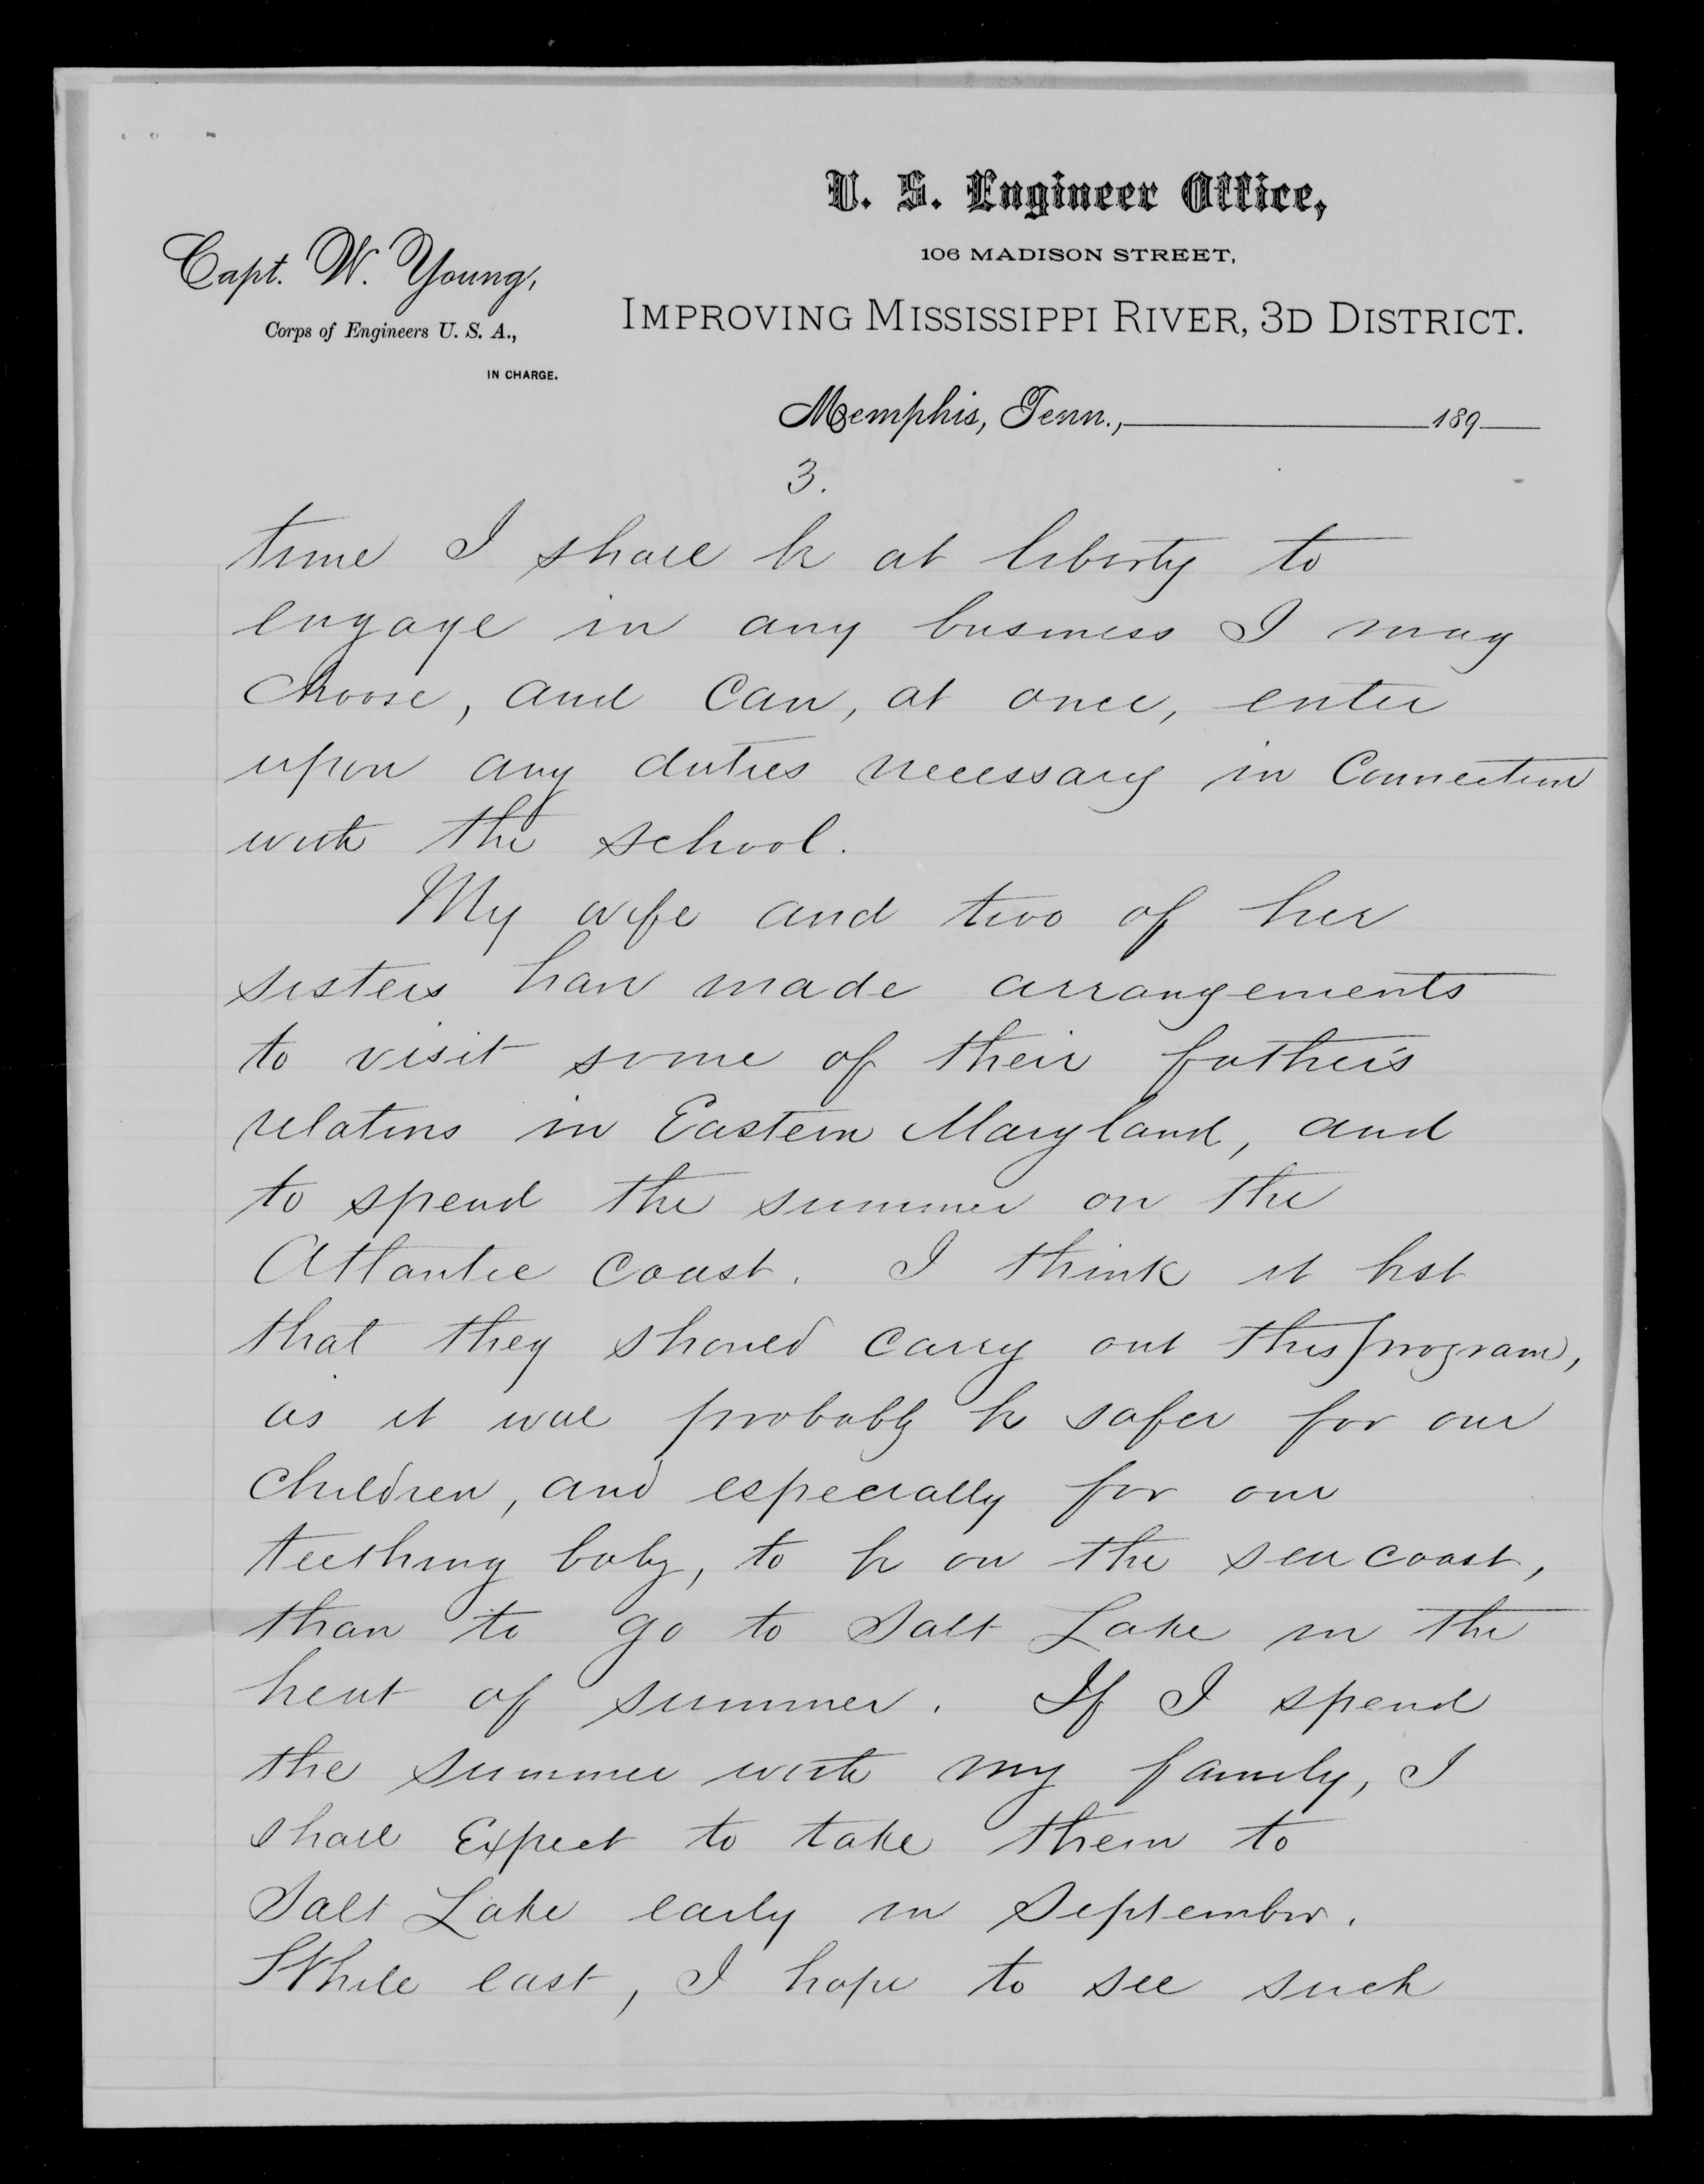 U. S. Engineer Office,
106 MADISON STREET,
Capt. W. Young,
Corps of Engineers U. S. A.,
IN CHARGE.
IMPROVING MISSISSIPPI RIVER, 3D DISTRICT.
Memphis, Tenn., 189
3.
time I shall be at liberty to
engage in any business I may
choose, and can, at once, enter
upon any duties necessary in connection
with the school.
My wife and two of her
sisters have made arrangements
to visit some of their father's
relations in Eastern Maryland, and
to spend the summer on the
Atlantic coast. I think it best
that they should carry out this program,
as it will probably be safer for our
children, and especially for our
teething baby, to be on the sea coast,
than to go to Salt Lake in the
heat of summer. If I spend
the summer with my family, I
shall expect to take them to
Salt Lake early in September.
While east, I hope to see such